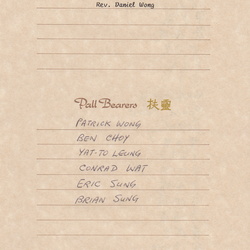 Rev. Daniel Wong
Pall Bearers 扶靈
PATRICK WONG
BEN CHOY
YAT-TO LEUNG
CONRAD WAT
ERIC SUNG
BRIAN SUNG